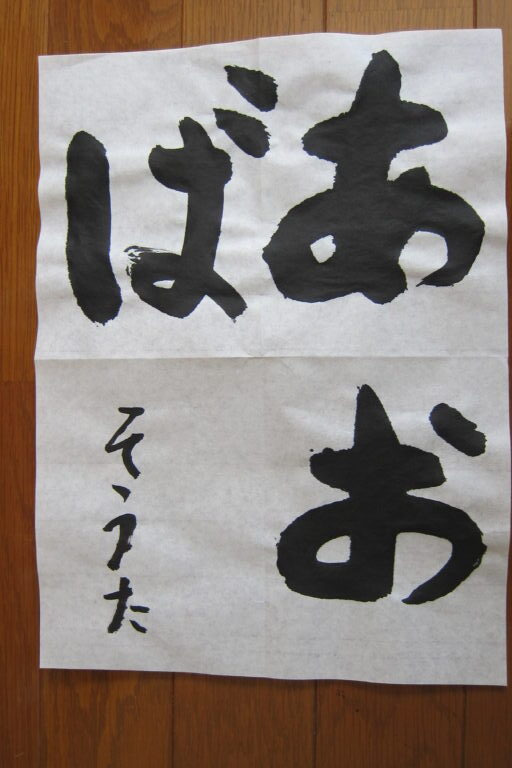 あお
ば
そうた